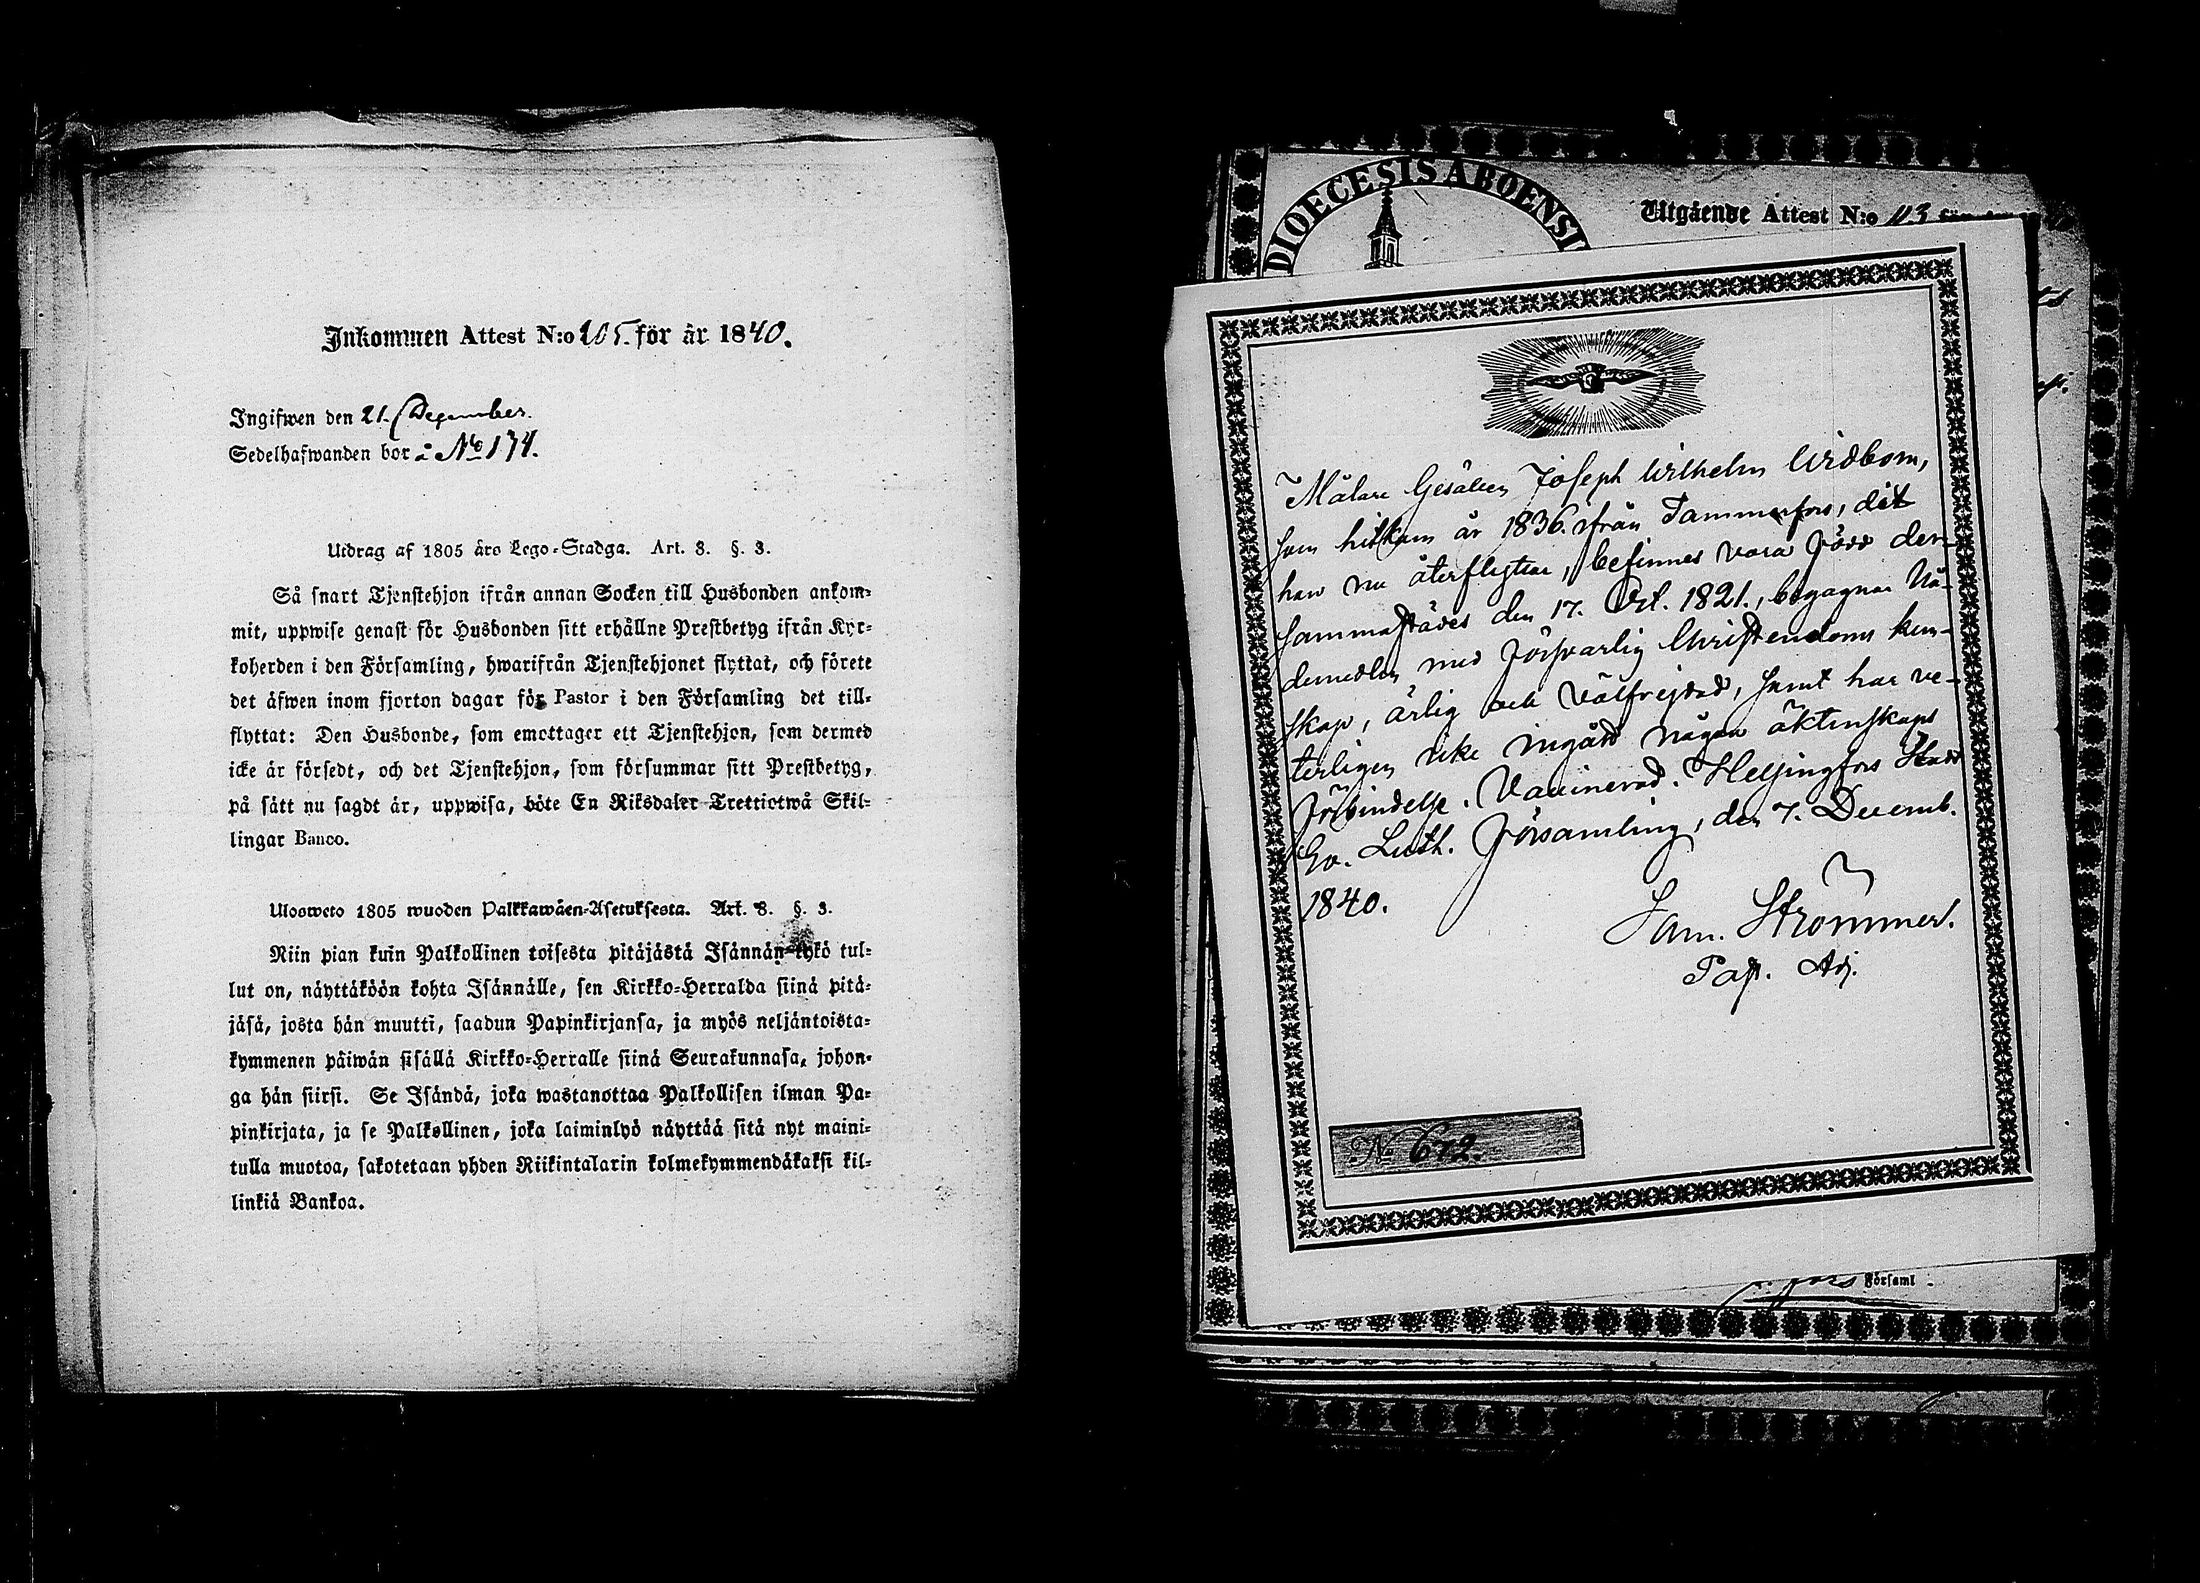 Inkommen Attest N:o 205. för år 1840.
Ingifwen den 21. December.
Sedelhafwanden bor å No 174.
Utdrag af 1805 års Lego-Stadga. Art. 8. §. 3.
Så snart Tjenstehjon ifrån annan Socken till Husbonden ankom-
mit, uppwise genast för Husbonden sitt erhållne Prestbetyg ifrån Kyr-
koherden i den Församling, hwarifrån Tjenstehjonet flyttat, och förete
det äfwen inom fjorton dagar för Pastor i den Församling det till-
flyttat: Den Husbonde, som emottager ett Tjenstehjon, som dermed
icke är försedt, och det Tjenstehjon, som försummar sitt Prestbetyg,
på sätt nu sagdt är, uppwisa, böte En Riksdaler Trettiotwå Skil-
lingar Banco.
Ulosweto 1805 wuoden Palkkawäen-Asetuksesta. Art. 8. §. 3.
Niin pian kuin Palkollinen toisesta pitäjästä Isännän-tykö tul-
lut on, näyttäköön kohta Isännälle, sen Kirkko-Herralda siinä pitä-
jäsä, josta hän muutti, saadun Papinkirjansa, ja myös neljäntoista-
kymmenen päiwän sisällä Kirkko-Herralle siinä Seurakunnasa, johon-
ga hän siirsi. Se Isändä, joka wastanottaa Palkollisen ilman Pa-
pinkirjata, ja se Palkollinen, joka laiminlyö näyttää sitä nyt maini-
tulla muotoa, sakotetaan yhden Riikintalarin kolmekymmendäkaksi kil-
linkiä Bankoa.
DIOECESIS ABOENSI
Utgående Attest N:o 113
Målare Gesällen Joseph Wilhelm Widbom,
som hitkom år 1836 ifrån Tammerfors, dit
han nu återflyttar, befinnes vara född der-
sammastädes den 17. Oct. 1821., begagnar Nå-
demedlen med försvarlig Christendoms kun-
skap, ärlig och välfrejdad, samt har ve-
terligen icke ingått någon äktenskaps
förbindelse. Vaccinerad. Helsingfors Stads
Ev. Luth. Församling, den 7. Decemb.
1840.
Sam. Strömmer.
Past. Adj.
No 672.
Församl